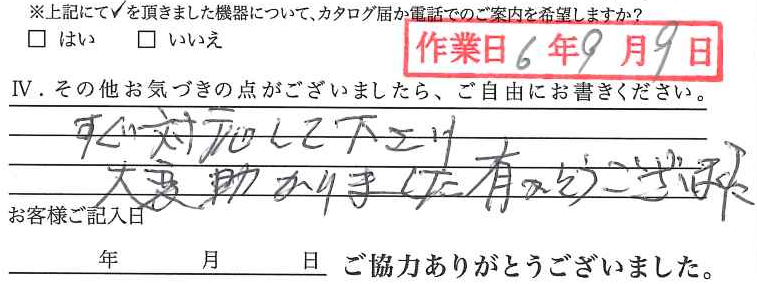 ※上記にて✓を頂きました機器について、カタログ届か電話でのご案内を希望しますか？
□ はい □ いいえ
作業日 6年9月9日
Ⅳ．その他お気づきの点がございましたら、ご自由にお書きください。
すぐに対応して下さり
大変助かりました 有がとうございました
お客様ご記入日
年 月 日 ご協力ありがとうございました。